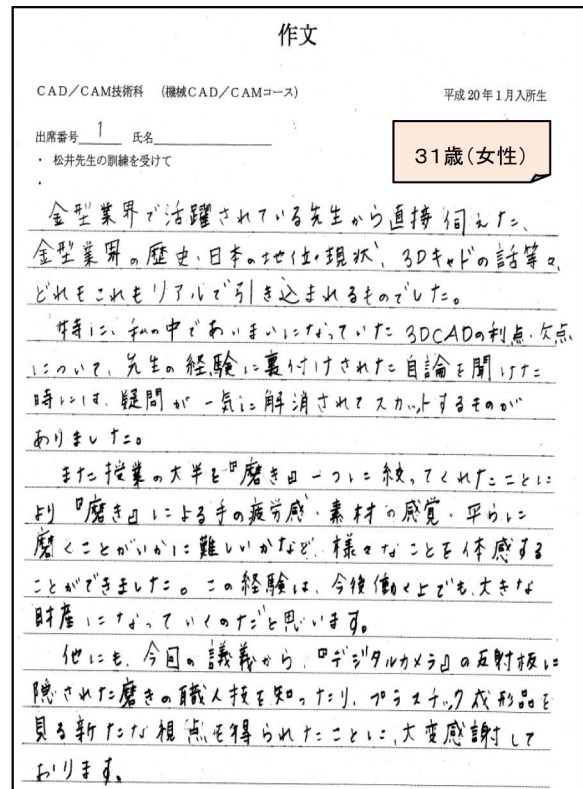 作文
CAD/CAM技術科 (機械CAD/CAMコース)
平成20年1月入所生
出席番号 1 氏名
31歳(女性)
・ 松井先生の訓練を受けて
・
金型業界で活躍されている先生から直接伺えた、
金型業界の歴史・日本の地位・現状、3Dキャドの話等々、
どれもこれもリアルで引き込まれるものでした。
特に、私の中であいまいになっていた3DCADの利点・欠点
について、先生の経験に裏付けされた自論を聞けた
時には、疑問が一気に解消されてスカットするものが
ありました。
また授業の大半を『磨き』一つに絞ってくれたことに
より『磨き』による手の疲労感・素材の感覚・平らに
磨くことがいかに難しいかなど、様々なことを体感する
ことができました。この経験は、今後働く上でも、大きな
財産になっていくのだと思います。
他にも、今回の講義から、『デジタルカメラ』の反射板に
隠された磨きの職人技を知ったり、プラスチック成形品を
見る新たな視点を得られたことに、大変感謝して
おります。